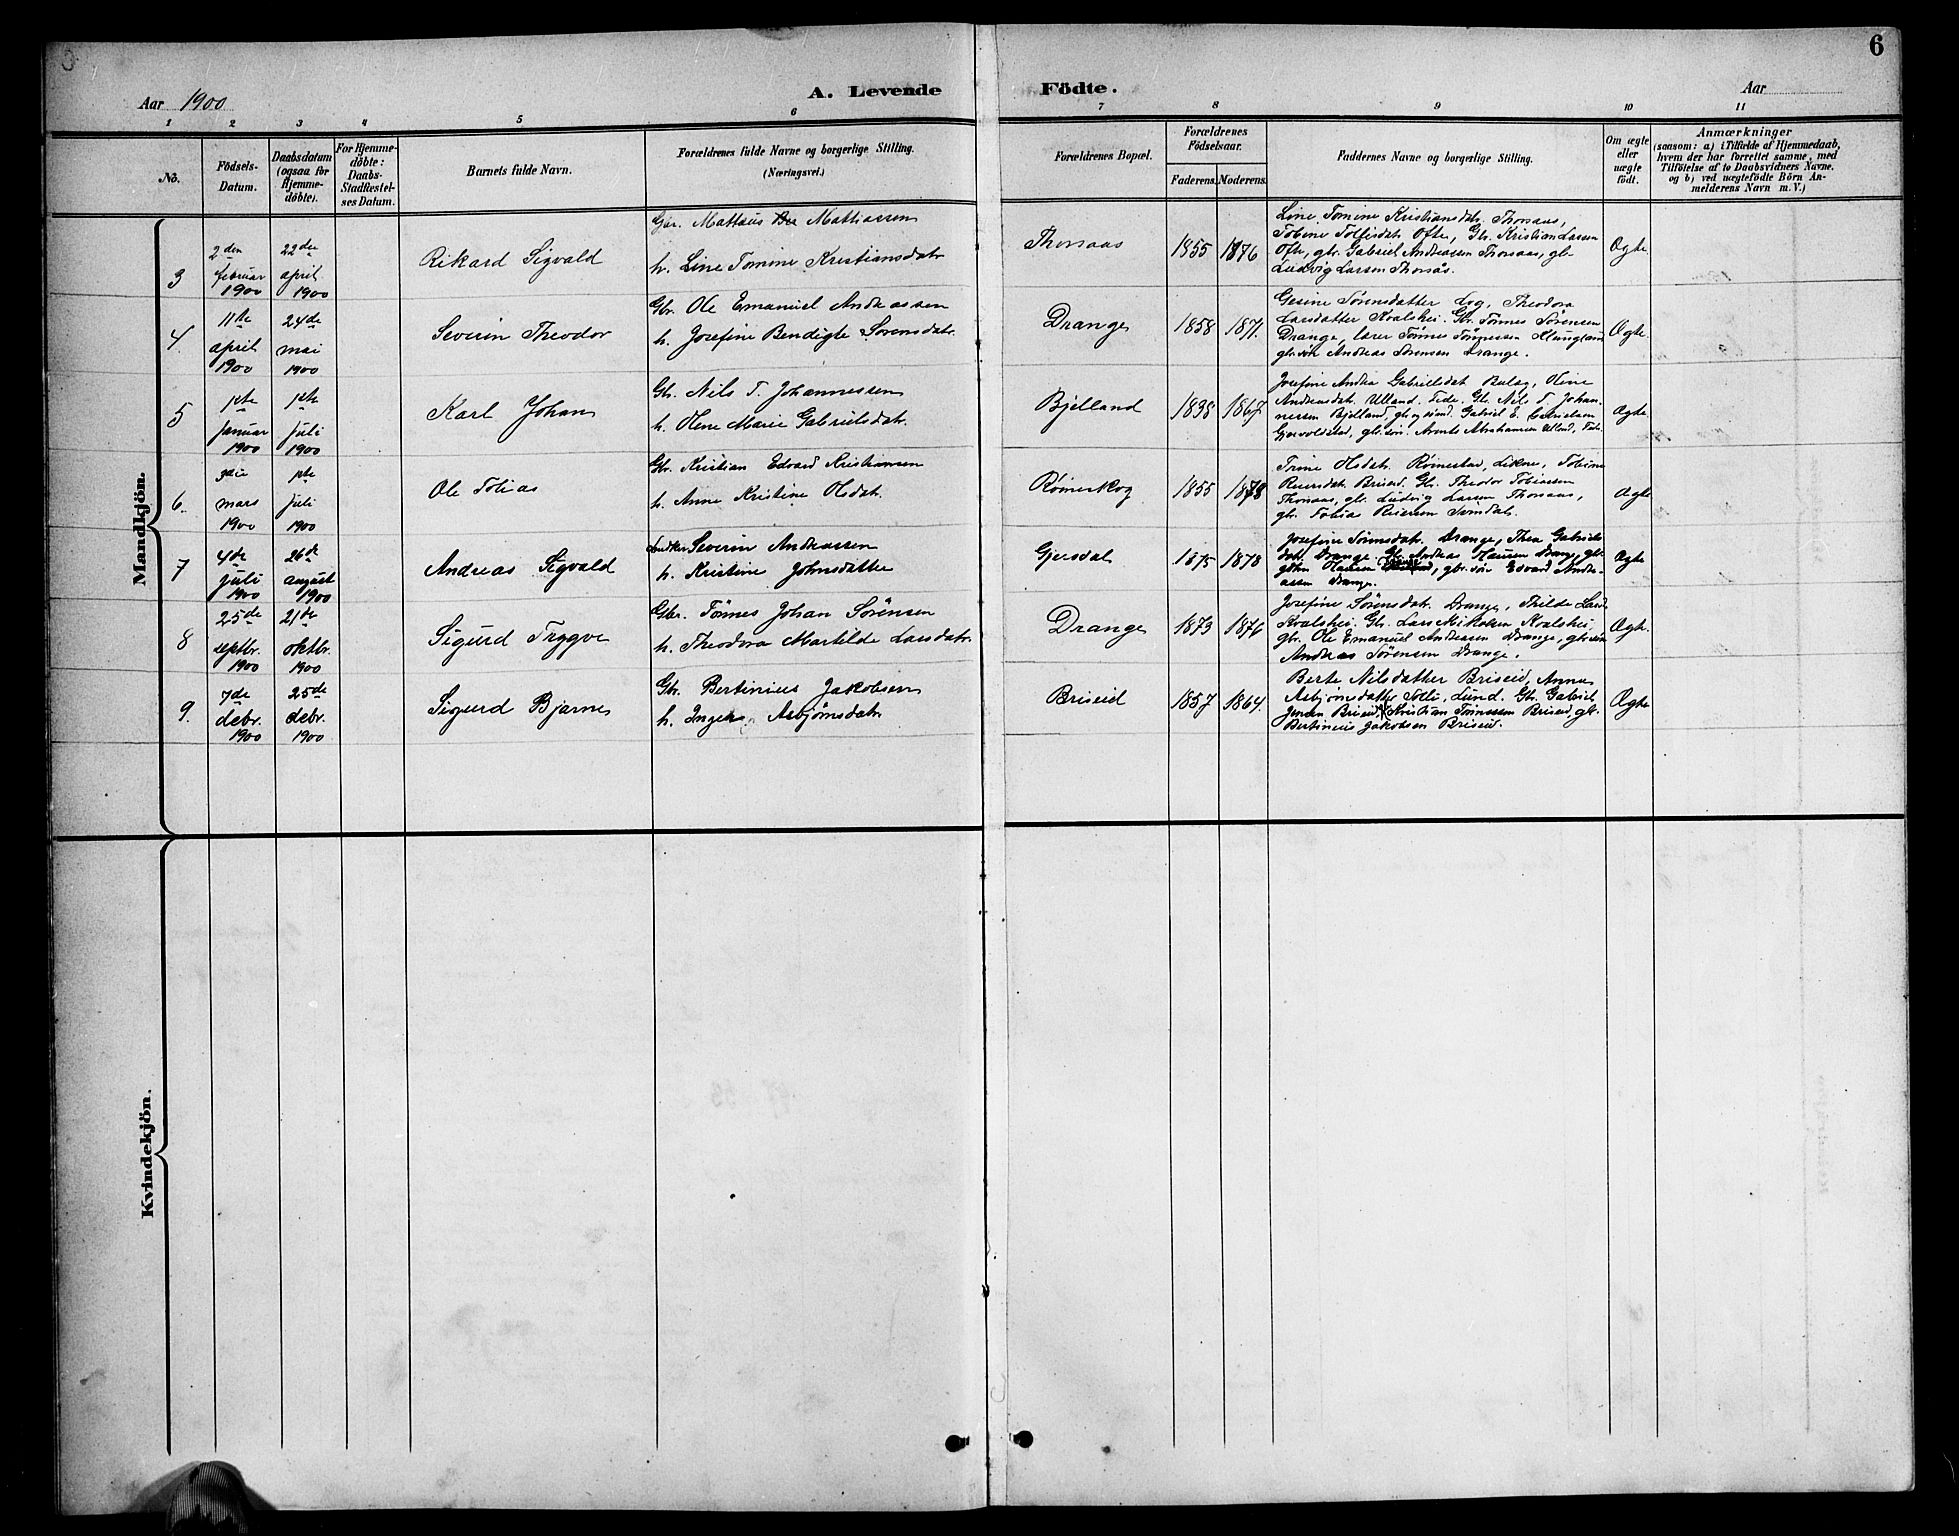 6
Aar 1900
A. Levende
Födte.
Aar
1 2 3 4 5 6 7 8 9 10 11
No.
Födsels-
Datum.
Daabsdatum
(ogsaa for
Hjemme-
döbte).
For Hjemme-
döbte:
Daabs-
Stadfæstel-
ses Datum.
Barnets fulde Navn.
Forældrenes fulde Navne og borgerlige Stilling.
(Næringsvei.)
Forældrenes Bopæl.
Forældrenes
Födselsaar.
Faderens. Moderens.
Faddernes Navne og borgerlige Stilling.
Om ægte
eller
uægte
födt.
Anmærkninger
(saasom: a) i Tilfælde af Hjemmedaab,
hvem der har forrettet samme, med
Tilföielse af to Daabsvidners Navne.
og b) ved uægtefödte Börn An-
melderens Navn m. V.)
Mandkjön.
3
2den
februar
1900
22de
april
1900
Rikard Sigvald
Gbr. Mattæus Mattiassen
h. Line Tomine Kristiansdatr.
Thorsaas
1855 1876
Line Tomine Kristiansdatr. Thorsaas,
Tobine Tollisdatr. Ofte, Gbr. Kristian Larsen
Ofte, gbr. Gabriel Andreassen Thorsaas, gbr.
Ludvig Larsen Thorsås.
Ægte
4.
11te
april
1900
24de
mai
1900
Severin Theodor
Gbr. Ole Emanuel Andreassen
h. Josefine Bendigte Sørensdatr.
Drange
1858 1871.
Gesine Sørensdatter Log, Theodora
Larsdatter Kvalshei. Gbr. Tønnes Sørensen
Drange, lærer Tønnes Tønnessen Klungland
gbr. søn Andreas Sørensen Drange.
Ægte
5
1ste
januar
1900
1ste
juli
1900
Karl Johan
Gbr. Nils T. Johannessen
h. Olene Marie Gabrielsdatr.
Bjelland
1838 1867
Josefine Andrea Gabrielsdat. Oline
Andreasdatr. Ulland, Fede. Gbr. Nils T. Johan-
nessen Bjelland, Gabriel E.
gbr. søn. Abrahamsen Ulland, Fede.
Ægte
6.
3die
mars
1900
1ste
juli
1900
Ole Tobias
Gbr. Kristian Edvard Kristiansen
h. Anne Kristine Olsdatr.
Rømeskog
1855 1878
Trine Olsdatr. Rømestad, Likne, Tobine
Reiersdatr. Briseid. Gbr. Theodor Tobiassen
Thorsaas, gbr. Ludvig Larsen Thorsaas,
gbr. Tobias Reiersen Svindal.
Ægte
7
4de
juli
1900
26de
august
1900
Andreas Sigvald
Severin Andreassen
h. Kristine Johnsdatter
Gjersdal
1875 1878
Josefine Sørensdatr. Drange, Thea Gabriels-
datr. Drange. Gbr. Andreas Hansen Drange, gbr.
Hansen gbr. søn Edvard Andre-
assen Drange.
Ægte
8
25de
septbr.
1900
21de
oktbr.
1900
Sigurd Tryggve
Gbr. Tønnes Johan Sørensen
h. Theodora Martilde Larsdatr.
Drange
1873 1876
Josefine Sørensdatr. Drange, Thilde Larsd.
Kvalshei. Gbr. Lars Mikalsen Kvalshei,
gbr. Ole Emanuel Andreassen Drange, gbr. søn
Andreas Sørensen Drange.
Ægte.
9.
7de
debr.
1900
25de
debr.
1900
Sigurd Bjarne
Gbr. Bertinius Jakobsen
h. Inger Asbjørnsdatr.
Briseid
1857 1864.
Berte Nilsdatter Briseid, Anne
Asbjørnsdatter Tolli, Lund. Gbr. Gabriel
Jensen Briseid, Kristian Tønnessen Briseid, gbr.
Bertinius Jakobsen Briseid.
Ægte
Kvindekjön.